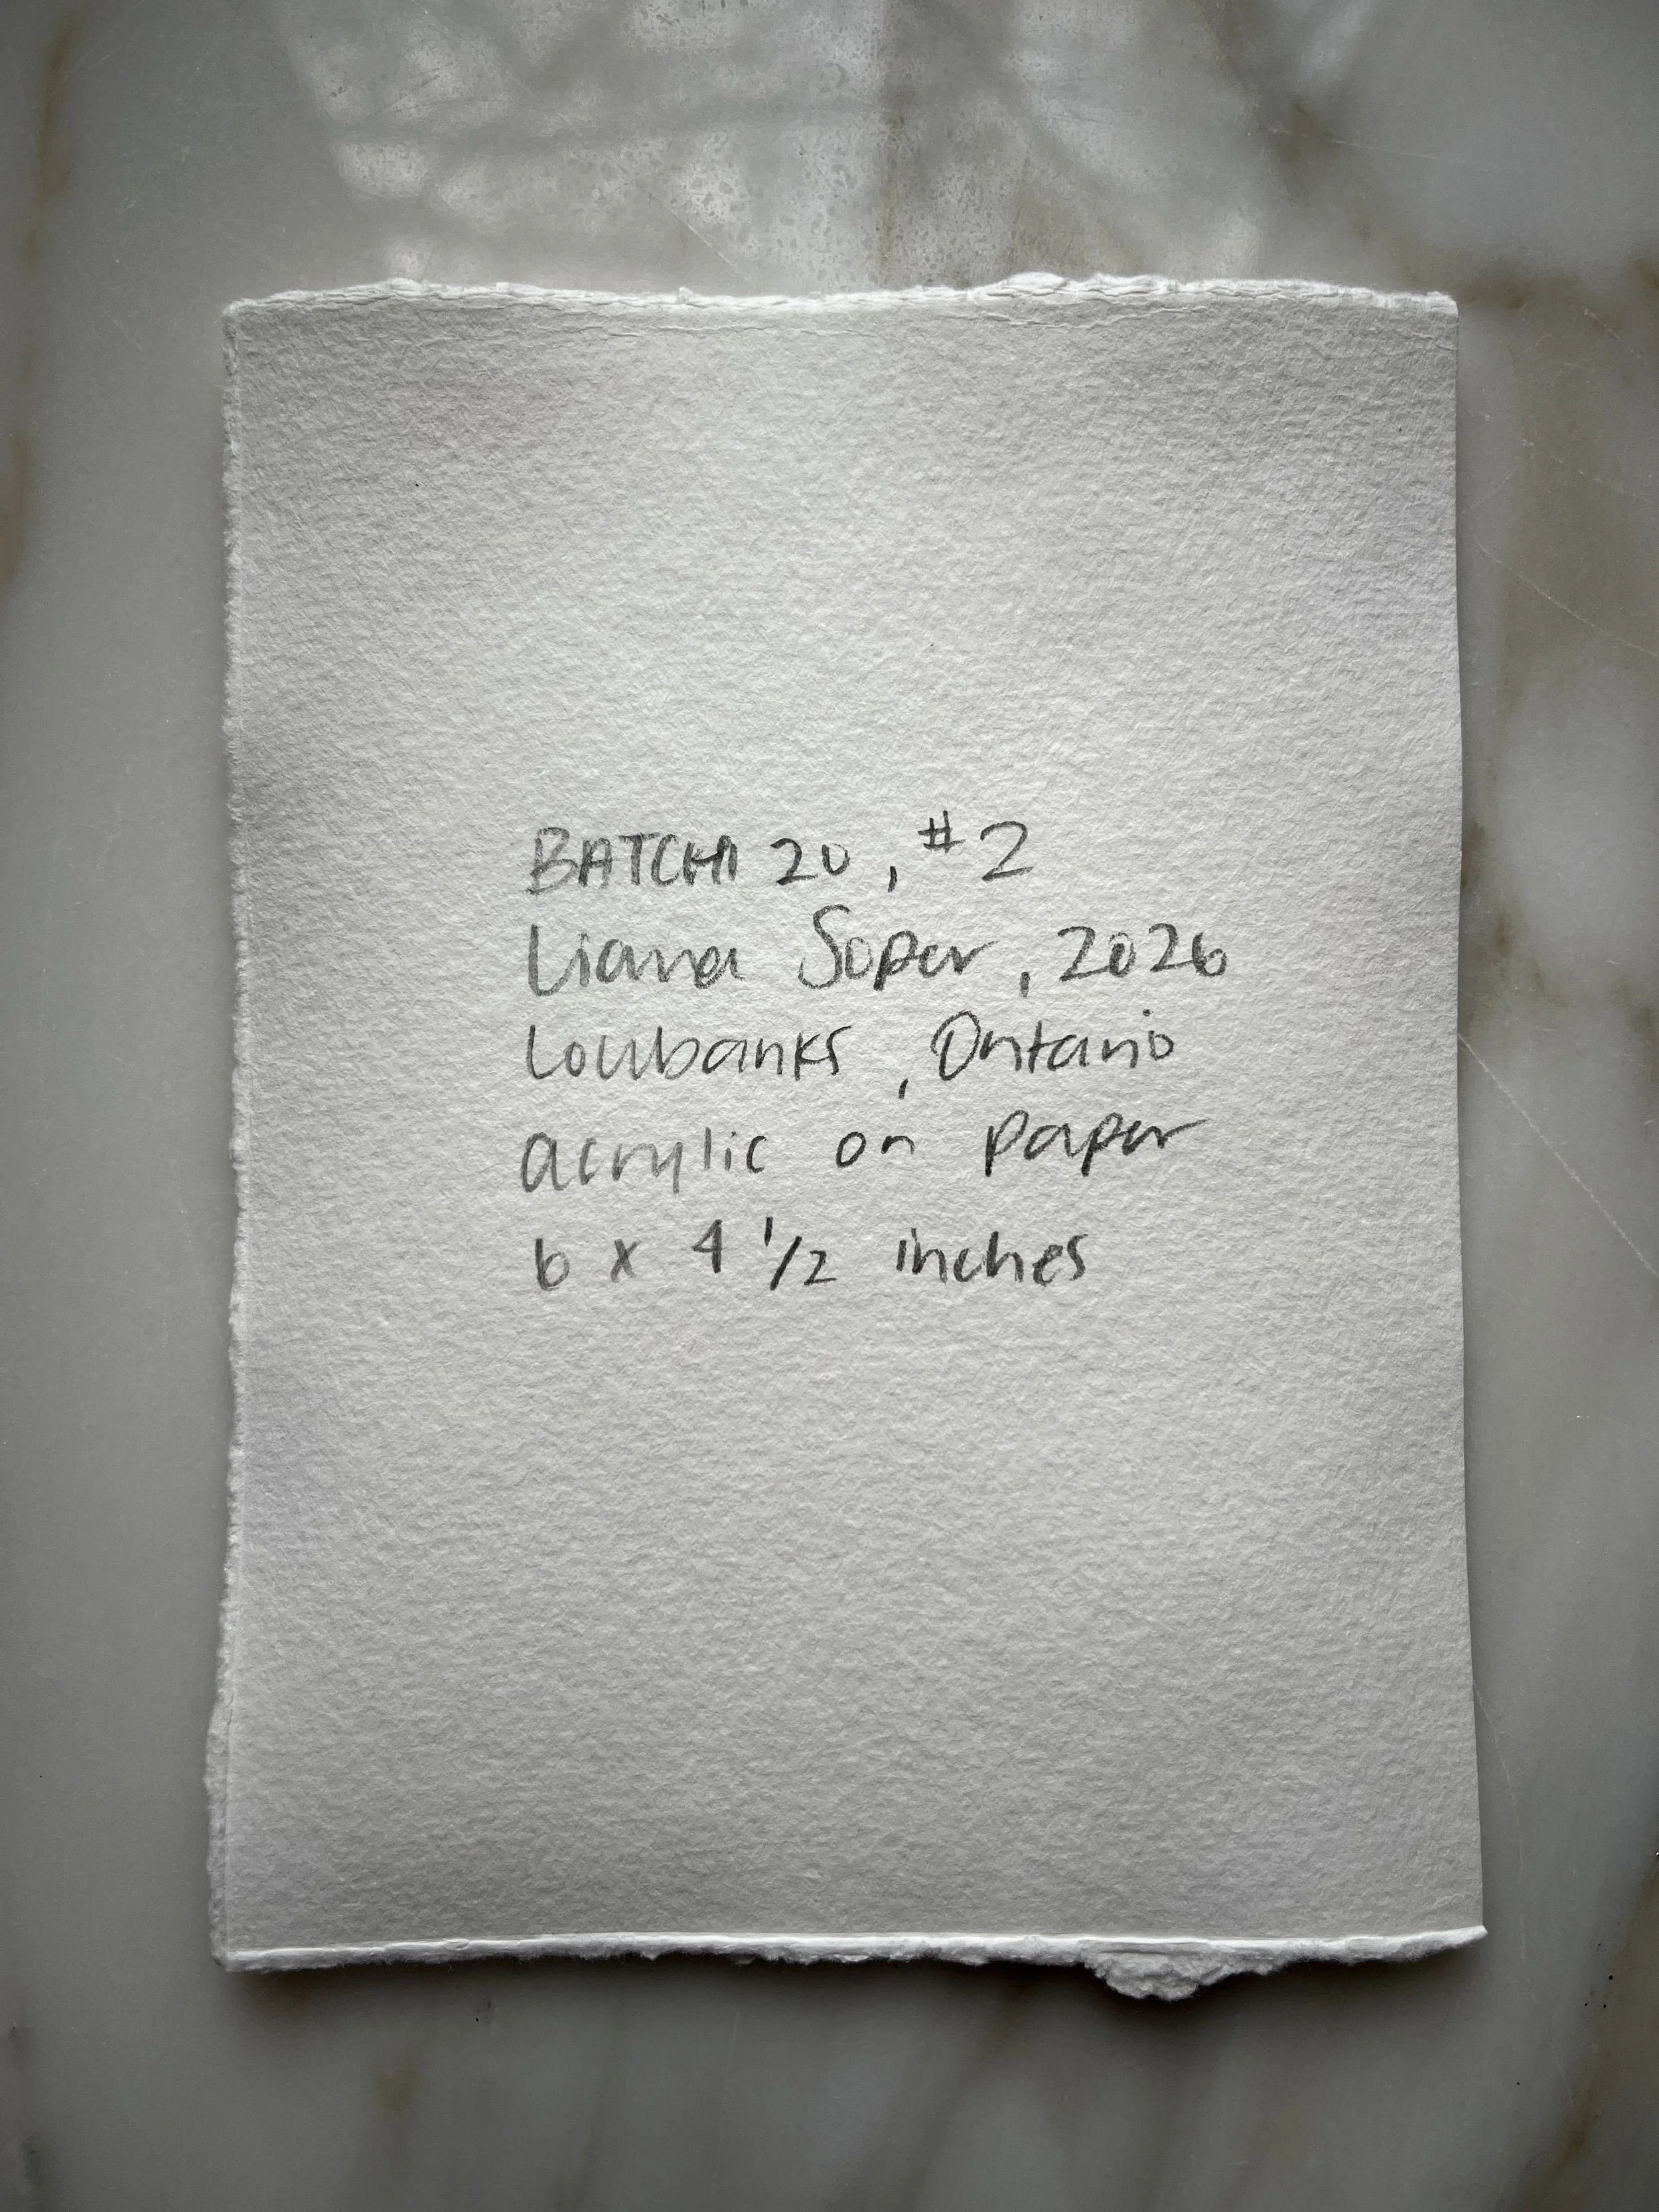 BATCH 20, #2
Liana Soper, 2026
Lowbanks, Ontario
acrylic on paper
6 x 4 1/2 inches